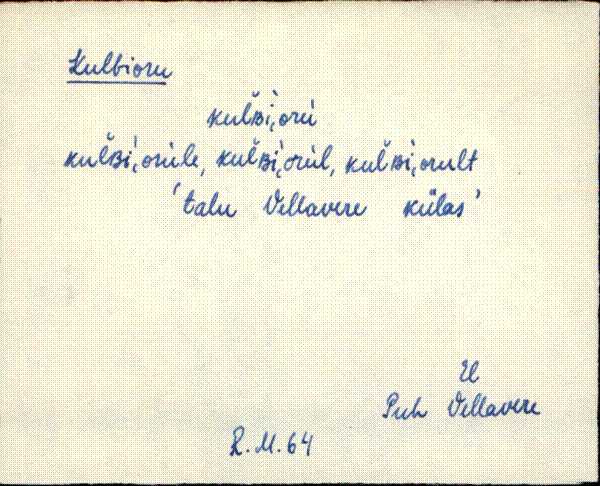 Kulbioru
kulʙ̆i̭orù
kulʙ̆i̭orùle, kulʙ̆i̭orùl, kulʙ̆i̭orult
'talu Vellavere külas'
El
Puh Vellavere
R.M.64